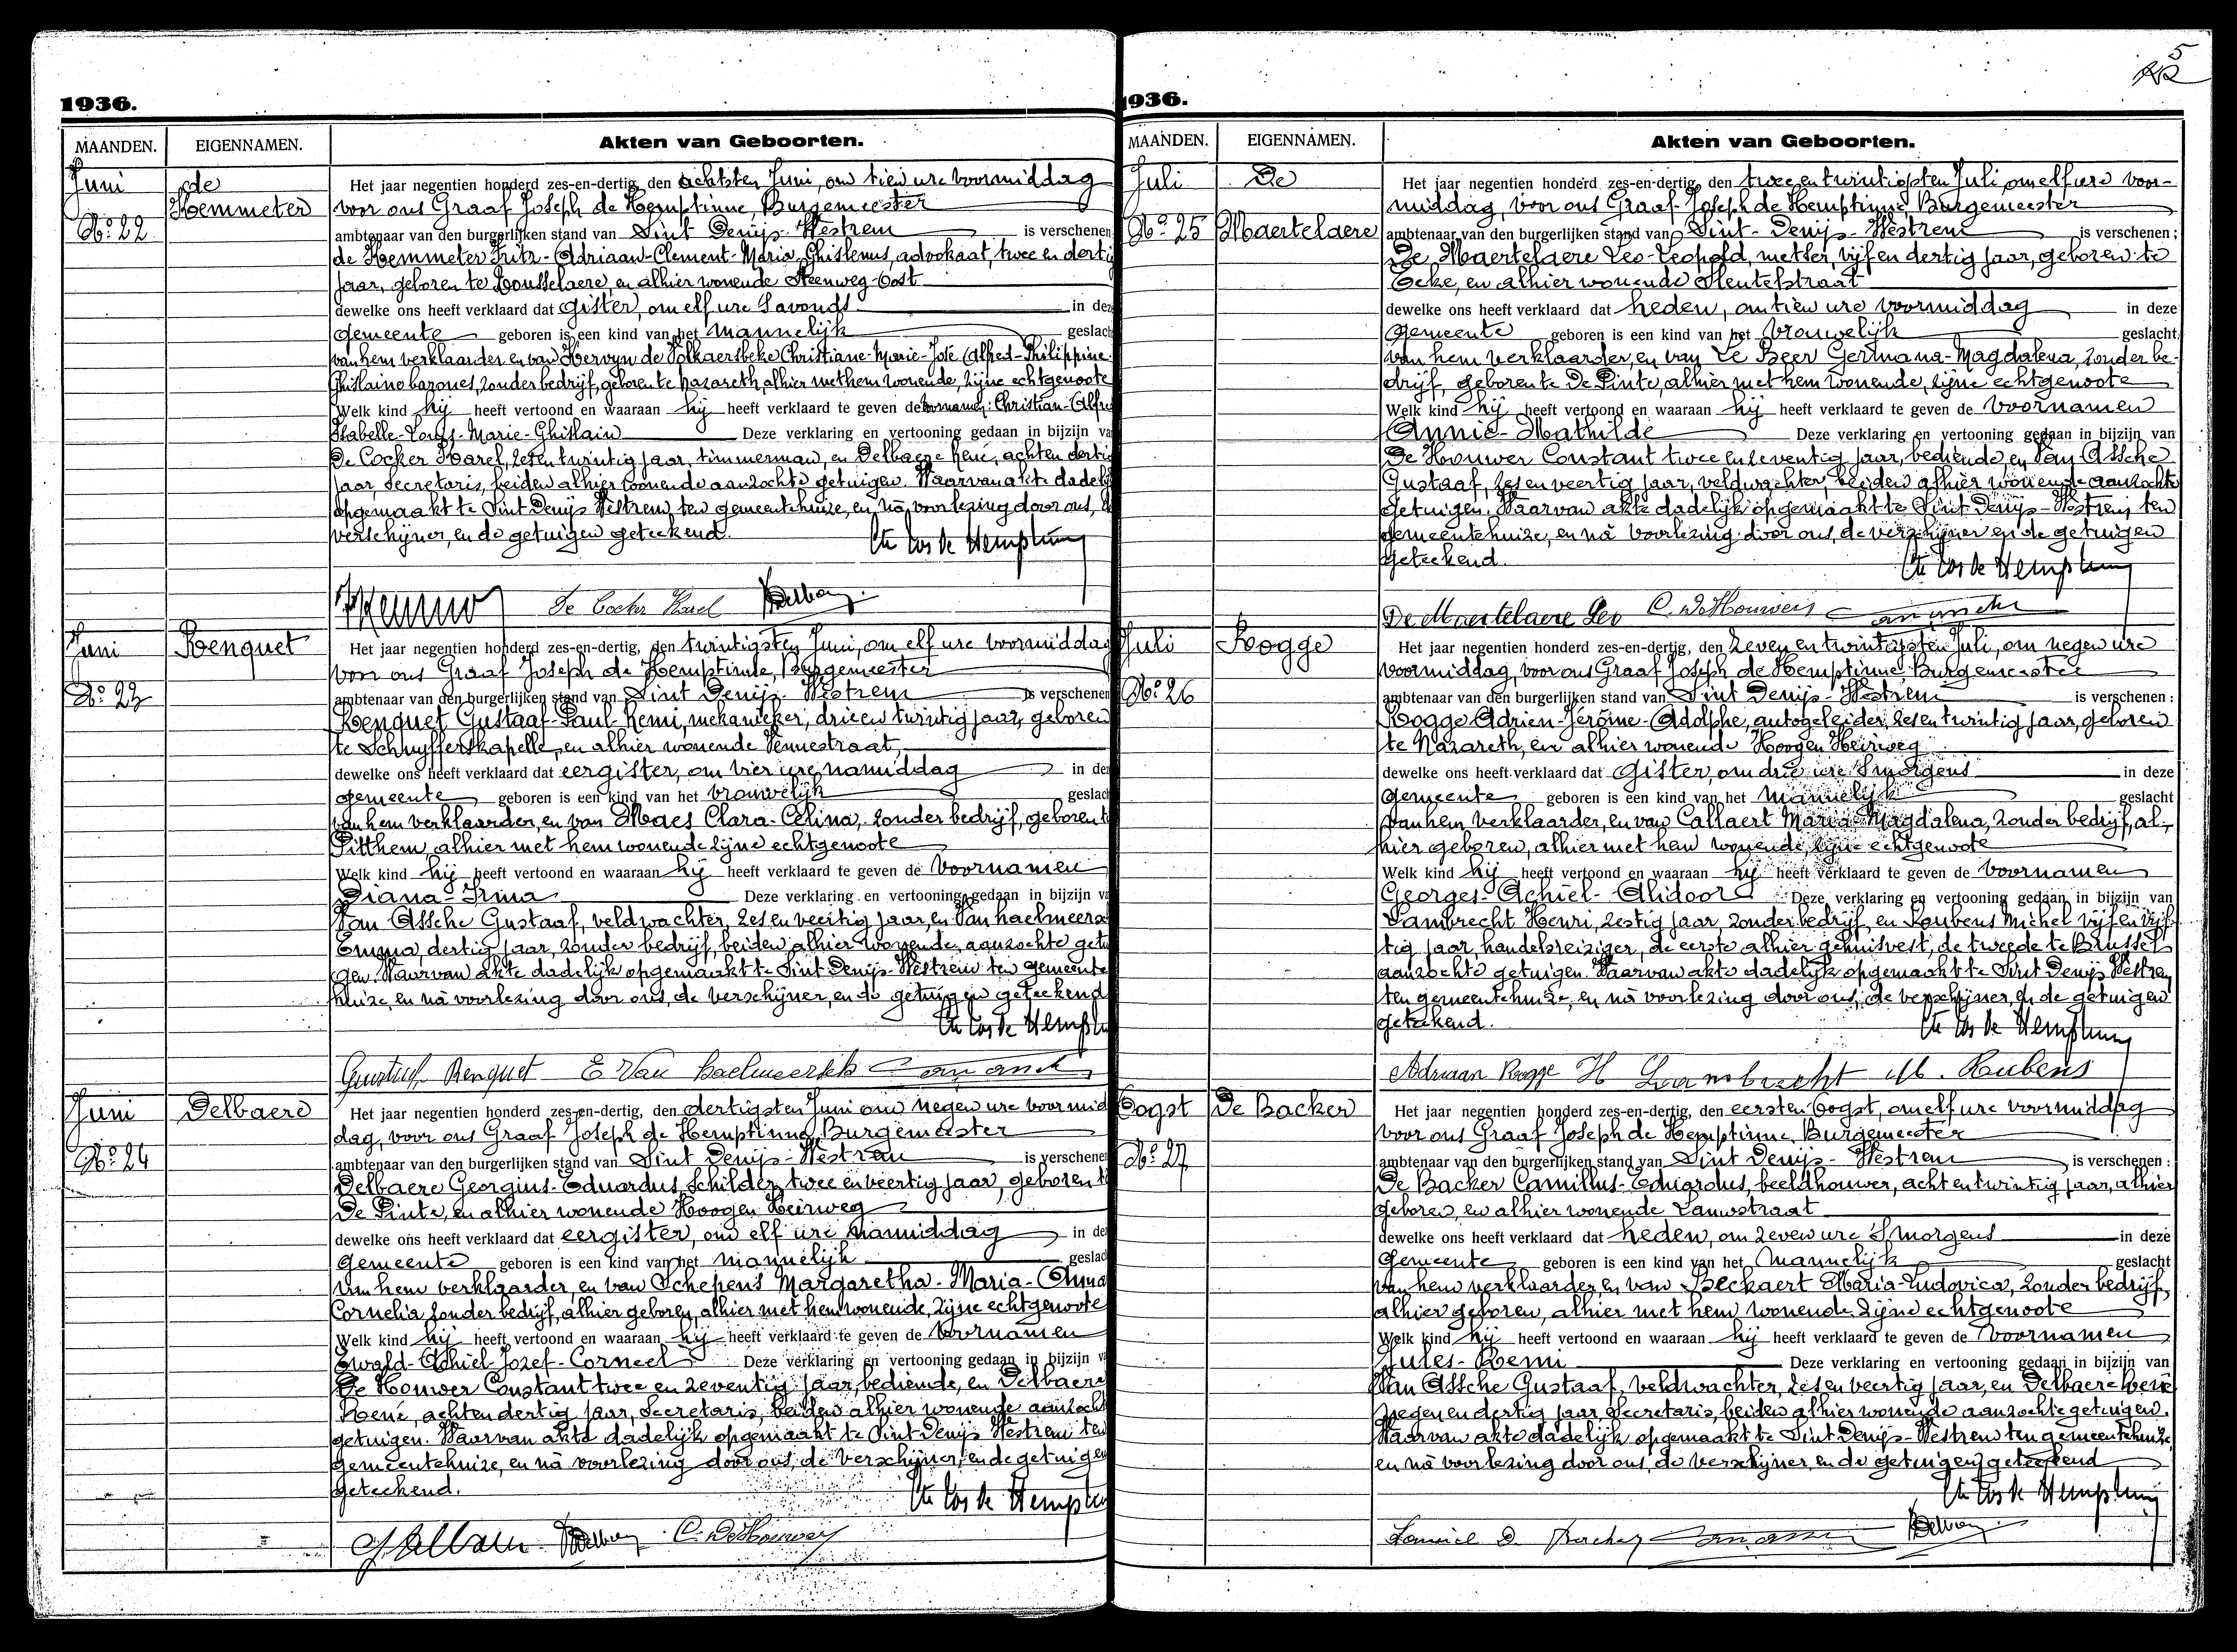 1936.
MAANDEN. EIGENNAMEN. Akten van Geboorten.
Juni de Het jaar negentien honderd zes-en-dertig, den achtsten Juni, om tien ure voormiddag
Kemmeter voor ons Graaf Joseph de Hemptinne, Burgemeester
No 22 ambtenaar van den burgerlijken stand van Sint Denijs-Westrem is verschenen
de Kemmeter Fritz-Adriaan-Clement-Maria-Ghislenus, advokaat, twee en dertig
jaar, geboren te Rousselaere, en alhier wonende Steenweg-Oost
dewelke ons heeft verklaard dat gister, om elf ure s'avonds in dez
gemeente geboren is een kind van het mannelijk geslach
van hem verklaarder en van Kervyn de Volkaersbeke Christiane-Marie-José-Alfred-Philippine-
Ghislaine barones, zonder bedrijf, geboren te Nazareth, alhier met hem wonende, zijne echtgenoote
Welk kind hij heeft vertoond en waaraan hij heeft verklaard te geven de voornamen: Christian-Alfre
Isabelle-Louis-Marie-Ghislain Deze verklaring en vertooning gedaan in bijzijn va
De Cocker Karel, zesentwintig jaar, timmerman, en Delbaere René, achtendertig
jaar, secretaris, beiden alhier wonende aanzochte getuigen. Waarvan akte dadelijk
opgemaakt te Sint Denijs Westrem, ten gemeentehuize, en nà voorlezing door ons, de
verschijner, en de getuigen geteekend.
Cte Jos de Hemptinne
De Cocker Karel RDelbaere
Juni Renquet Het jaar negentien honderd zes-en-dertig, den twintigsten Juni, om elf ure voormiddag
voor ons Graaf Joseph de Hemptinne, Burgemeester
No 23 ambtenaar van den burgerlijken stand van Sint Denijs-Westrem is verschenen
Renquet Gustaaf-Paul-Remi, mekanieker, drieen twintig jaar, geboren
te Schuyfferskapelle, en alhier wonende Vennestraat
dewelke ons heeft verklaard dat eergister, om vier ure namiddag in dez
gemeente geboren is een kind van het vrouwelijk geslach
van hem verklaarder, en van Maes Clara-Celina, zonder bedrijf, geboren te
Pitthem, alhier met hem wonende zijne echtgenoote
Welk kind hij heeft vertoond en waaraan hij heeft verklaard te geven de voornamen
Diana-Irma Deze verklaring en vertooning gedaan in bijzijn va
Van Assche Gustaaf, veldwachter, zesenveertig jaar, en Van haelmeersch
Emma, dertig jaar, zonder bedrijf, beiden alhier wonende, aanzochte getui
gen. Waarvan akte dadelijk opgemaakt te Sint Denijs-Westrem ten gemeente
huize, en nà voorlezing door ons, de verschijner, en de getuigen geteekend
Cte Jos de Hemptinne
Gustaf Renquet E Van haelmeersch
Juni Delbaere Het jaar negentien honderd zes-en-dertig, den dertigsten Juni om negen ure voormid
dag, voor ons Graaf Joseph de Hemptinne, Burgemeester
No 24 ambtenaar van den burgerlijken stand van Sint Denijs-Westrem is verschenen
Delbaere Georgius-Eduardus, schilder, twee enveertig jaar, geboren te
De Pinte, en alhier wonende Hoogen Heirweg
dewelke ons heeft verklaard dat eergister, om elf ure namiddag in de
gemeente geboren is een kind van het mannelijk geslach
van hem verklaarder, en van Schepens Margaretha-Maria-Anna
Cornelia, zonder bedrijf, alhier geboren, alhier met hem wonende, zijne echtgenoote
Welk kind hij heeft vertoond en waaraan hij heeft verklaard te geven de voornamen
Ewald-Achiel-Jozef-Corneel Deze verklaring en vertooning gedaan in bijzijn v
De Houwer Constant twee en zeventig jaar, bediende, en Delbaere
René, achtendertig jaar, secretaris, beiden alhier wonende aanzocht
getuigen. Waarvan akte dadelijk opgemaakt te Sint Denijs Westrem ten
gemeentehuize, en nà voorlezing door ons, de verschijner, en de getuigen
geteekend.
Cte Jos de Hemptinne
GDelbaere RDelbaere C. De Houwer
5
1936.
MAANDEN. EIGENNAMEN. Akten van Geboorten.
Juli De Het jaar negentien honderd zes-en-dertig, den tweeentwintigsten Juli om elf ure voor-
middag, voor ons Graaf Joseph de Hemptinne Burgemeester
No 25 Maertelaere ambtenaar van den burgerlijken stand van Sint-Denijs-Westrem is verschenen:
De Maertelaere Leo-Leopold, metser, vijf en dertig jaar, geboren te
Ecke, en alhier wonende Sleutelstraat
dewelke ons heeft verklaard dat heden, om tien ure voormiddag in deze
gemeente geboren is een kind van het vrouwelijk geslacht
van hem verklaarder, en van De Beer Germana-Magdalena, zonder be-
drijf, geboren te De Pinte, alhier met hem wonende, zijne echtgenoote
Welk kind hij heeft vertoond en waaraan hij heeft verklaard te geven de voornamen
Annie-Mathilde Deze verklaring en vertooning gedaan in bijzijn van
De Houwer Constant twee enzeventig jaar, bediende, en Van Assche
Gustaaf, zesenveertig jaar, veldwachter, beiden alhier wonende aanzochte
getuigen. Waarvan akte dadelijk opgemaakt te Sint Denijs-Westrem ten
gemeentehuize, en nà voorlezing door ons, de verschijner en de getuigen
geteekend.
Cte Jos de Hemptinne
De Maertelaere Leo C. De Houwer
Juli Rogge Het jaar negentien honderd zes-en-dertig, den zeven en twintigsten Juli, om negen ure
voormiddag, voor ons Graaf Joseph de Hemptinne Burgemeester
No 26 ambtenaar van den burgerlijken stand van Sint Denijs-Westrem is verschenen:
Rogge Adrien-Jerôme-Adolphe, autogeleider, zesentwintig jaar, geboren
te Nazareth, en alhier wonende Hoogen Heirweg
dewelke ons heeft verklaard dat gister, om drie ure s'morgens in deze
gemeente geboren is een kind van het mannelijk geslacht
van hem verklaarder, en van Callaert Maria-Magdalena, zonder bedrijf, al-
hier geboren, alhier met hem wonende, zijne echtgenoote
Welk kind hij heeft vertoond en waaraan hij heeft verklaard te geven de voornamen
Georges-Achiel-Alidoor Deze verklaring en vertooning gedaan in bijzijn van
Lambrecht Henri, zestig jaar, zonder bedrijf, en Roubens Michel vijfenvijf-
tig jaar, handelsreiziger, de eerste alhier gehuisvest, de tweede te Brussel
aanzochte getuigen. Waarvan akte dadelijk opgemaakt te Sint Denijs Westrem
ten gemeentehuize, en nà voorlezing door ons, de verschijner, en de getuigen
geteekend.
Cte Jos de Hemptinne
Adriaan Rogge H Lambrecht M. Rubens
Oogst De Backer Het jaar negentien honderd zes-en-dertig, den eersten Oogst, om elf ure voormiddag
voor ons Graaf Joseph de Hemptinne Burgemeester
No 27 ambtenaar van den burgerlijken stand van Sint Denijs-Westrem is verschenen:
De Backer Camillus-Eduardus, beeldhouwer, acht entwintig jaar, alhier
geboren, en alhier wonende Lauwstraat
dewelke ons heeft verklaard dat heden, om zeven ure s'morgens in deze
gemeente geboren is een kind van het mannelijk geslacht
van hem verklaarder, en van Beckaert Maria-Ludovica, zonder bedrijf,
alhier geboren, alhier met hem wonende zijne echtgenoote
Welk kind hij heeft vertoond en waaraan hij heeft verklaard te geven de voornamen
Jules-Remi Deze verklaring en vertooning gedaan in bijzijn van
Van Assche Gustaaf, veldwachter, zesenveertig jaar, en Delbaere René
negenendertig jaar, secretaris, beiden alhier wonende aanzochte getuigen.
Waarvan akte dadelijk opgemaakt te Sint Denijs-Westrem ten gemeentehuize,
en nà voorlezing door ons, de verschijner, en de getuigen geteekend
Cte Jos de Hemptinne
Kamiel D. Backer RDelbaere